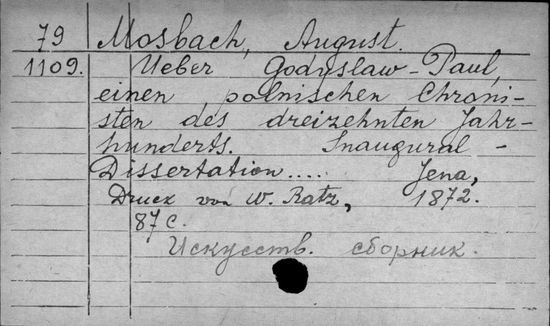 79 Mosbach, August.
1109. Ueber Godyslaw-Paul,
einen polnischen Chroni-
sten des dreizehnten Jahr-
hunderts. Inaugural-
Dissertation..... Jena,
Druck von W. Ratz, 1872.
87 с.
Искусств. сборник.